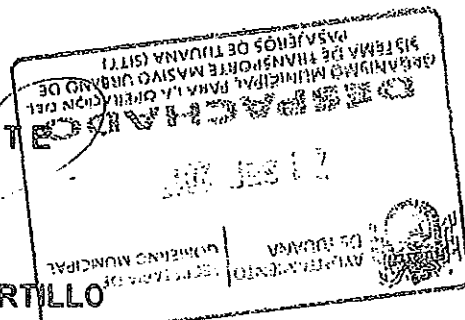 TE
RTILLO
AYUNTAMIENTO
DE TIJUANA
SECRETARIA DE
GOBIERNO MUNICIPAL
SEP
DESPACHADO
ORGANISMO MUNICIPAL PARA LA OPERACION DEL
SISTEMA DE TRANSPORTE MASIVO URBANO DE
PASAJEROS DE TIJUANA (SITT)